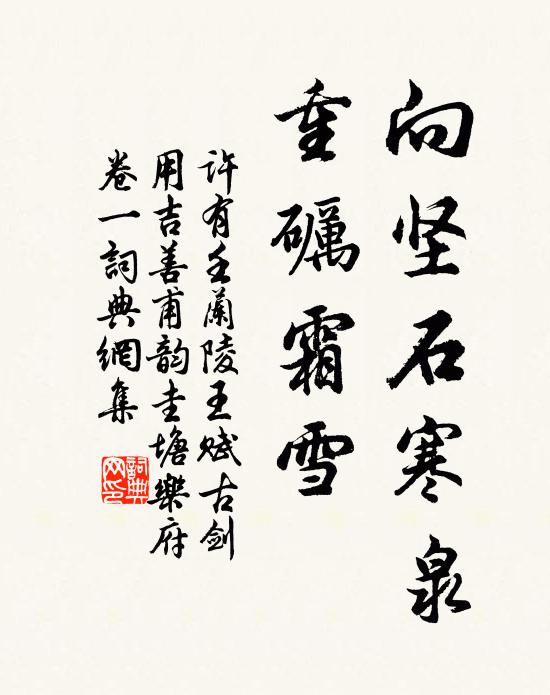 向坚石寒泉
重礪霜雪
许有壬蘭陵王赋古剑
用吉善甫韵圭塘樂府
卷一詞典網集
詞典
网印